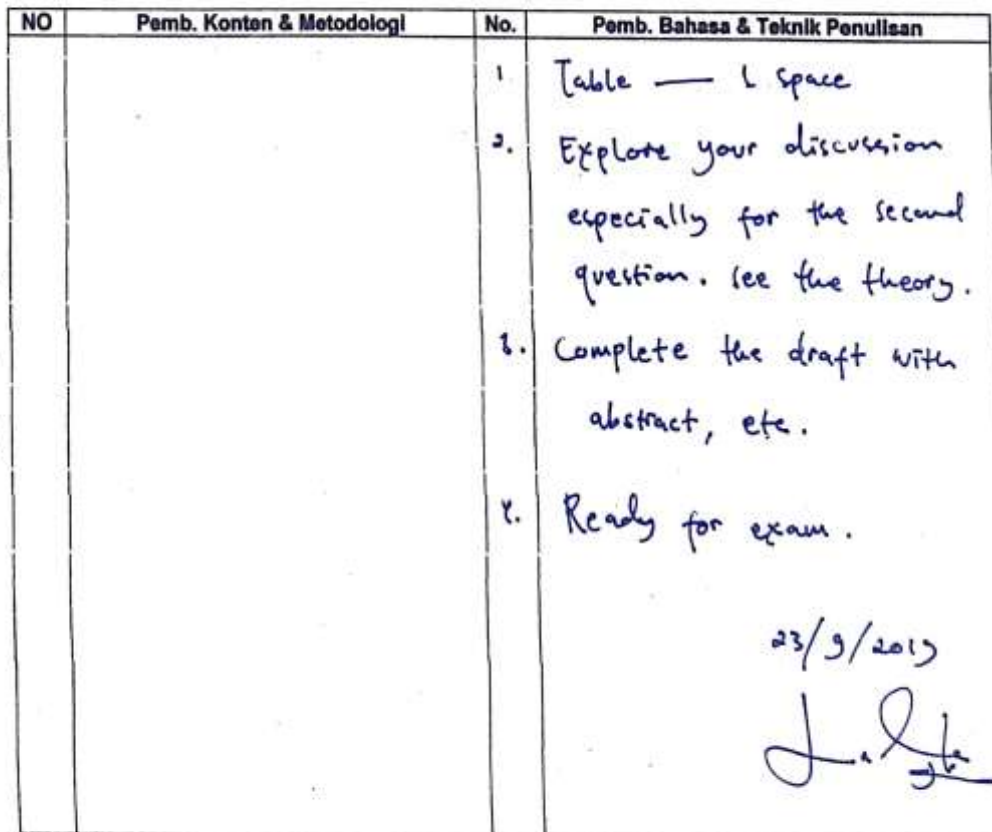 NO Pemb. Konten & Metodologi No. Pemb. Bahasa & Teknik Penulisan
1 Table — 1 space
2. Explore your discussion
especially for the second
question. see the theory.
3. Complete the draft with
abstract, etc.
4. Ready for exam.
23/9/2019